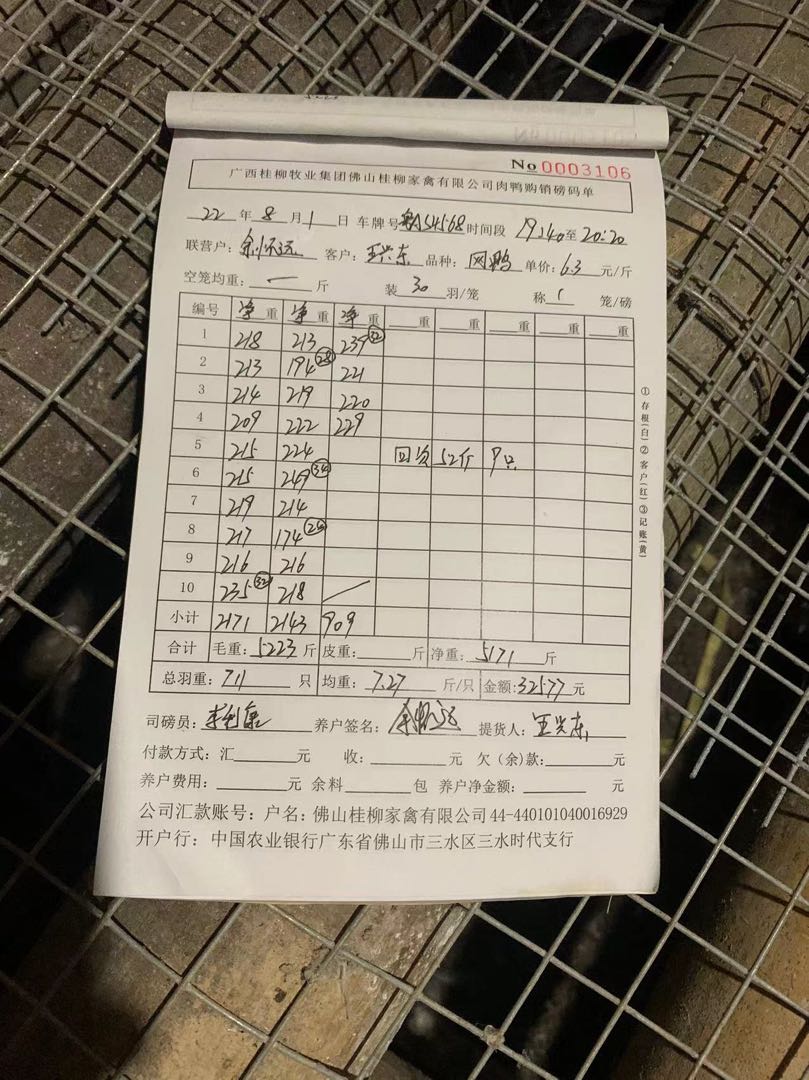 No 0003106
广西桂柳牧业集团佛山桂柳家禽有限公司肉鸭购销磅码单
22 年 8 月 1 日 车牌号 粤AS4568 时间段 19:40 至 20:20
联营户: 客户: 王兴东 品种: 网鸭 单价: 6.3 元/斤
空笼均重: — 斤 装 30 羽/笼 称 1 笼/磅
编号 净重 净重 净重 重 重 重 重 重
1 218 213 239 ㉜
2 213 194 ㉘ 221
3 214 219 220
4 209 222 229
5 215 224 回资 52斤 9只
6 215 249 ㉞
7 219 214
8 217 174 ㉔
9 216 216
10 235 ㉜ 218
小计 2171 2143 909
合计 毛重: 5223 斤 皮重: 斤 净重: 5171 斤
总羽重: 711 只 均重: 7.27 斤/只 金额: 32577 元
司磅员: 养户签名: 提货人: 王兴东
付款方式: 汇 元 收: 元 欠(余)款: 元
养户费用: 元 余料 包 养户净金额: 元
公司汇款账号: 户名: 佛山桂柳家禽有限公司44-440101040016929
开户行: 中国农业银行广东省佛山市三水区三水时代支行
①存根(白)②客户(红)③记账(黄)